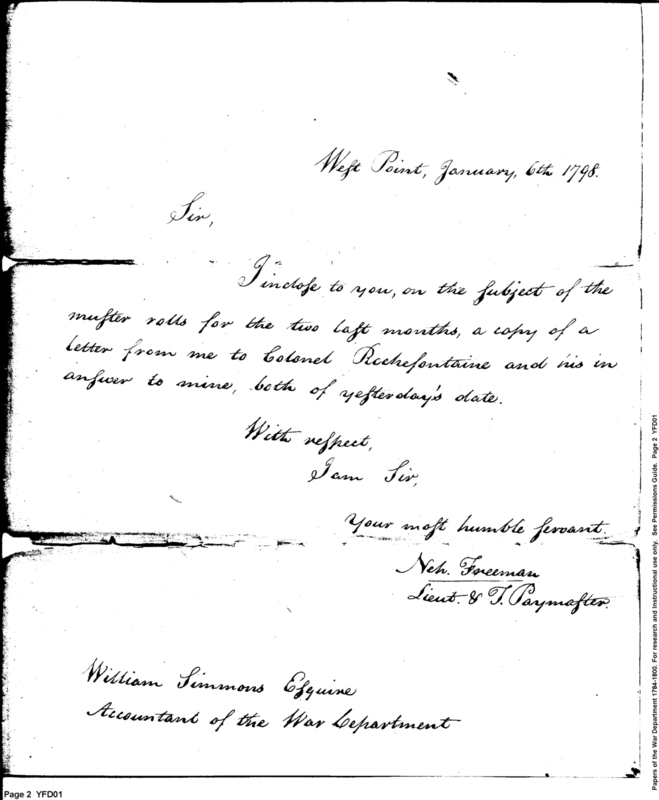 West Point, January, 6th 1798.
Sir,
I inclose to you, on the subject of the
muster rolls for the two last months, a copy of a
letter from me to Colonel Rochefontaine and his in
answer to mine, both of yesterday's date.
With respect,
I am Sir,
Your most humble servant.
Neh. Freeman
Lieut. & T. Paymaster.
William Simmons Esquire
Accountant of the War Department
Page 2 YFD01
Papers of the War Department 1784-1800. For research and instructional use only. See Permissions Guide. Page 2 YFD01